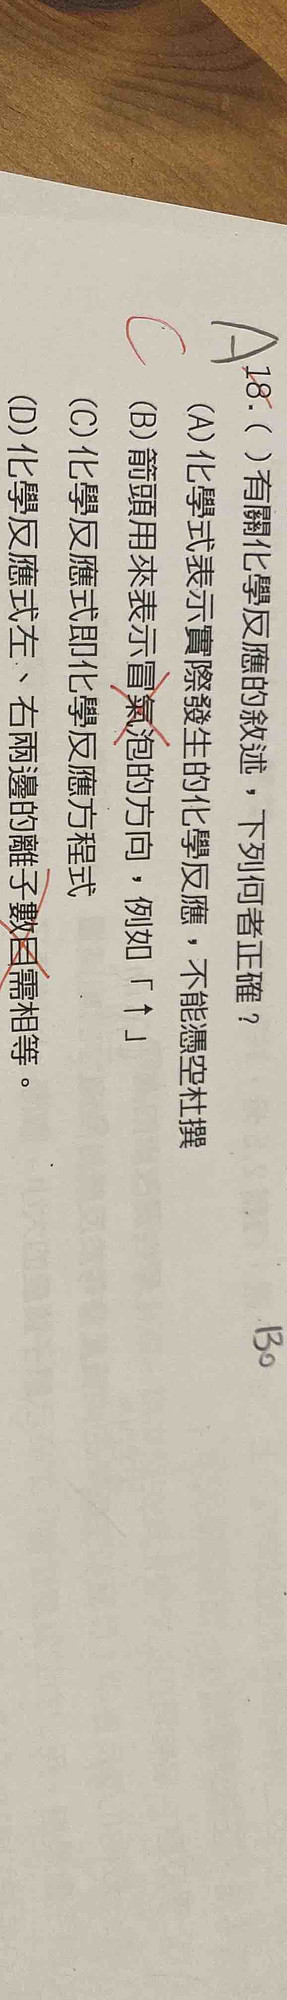 A 18.( )有關化學反應的敘述，下列何者正確？
(A)化學式表示實際發生的化學反應，不能憑空杜撰
C
(B)箭頭用來表示冒氣泡的方向，例如「↑」
(C)化學反應式即化學反應方程式
(D)化學反應式左、右兩邊的離子數目需相等。
130